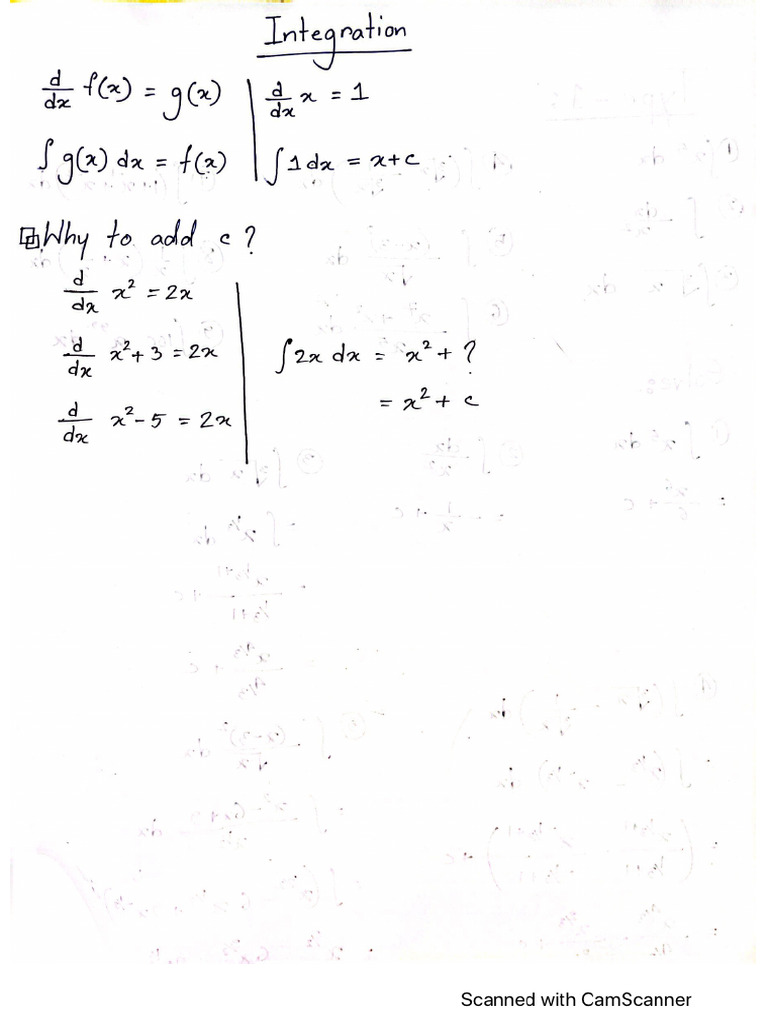 Integration
d/dx f(x) = g(x) | d/dx x = 1
∫ g(x) dx = f(x) | ∫ 1 dx = x+c
Why to add c ?
d/dx x² = 2x
d/dx x² + 3 = 2x | ∫ 2x dx = x² + ?
= x² + c
d/dx x² - 5 = 2x
Scanned with CamScanner